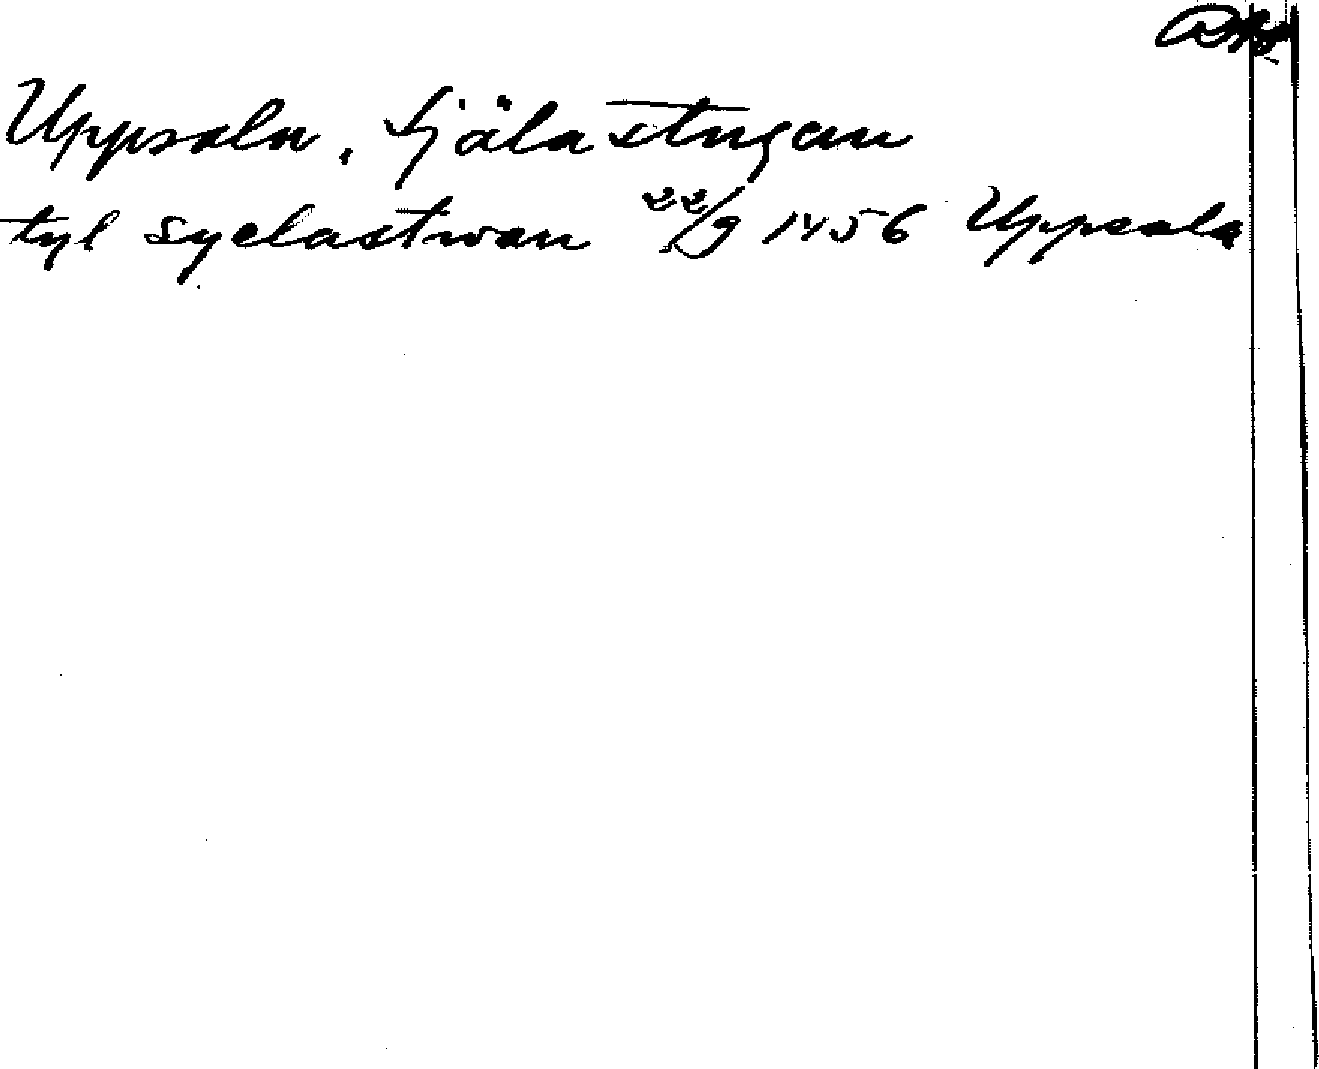 Uppsala, Själastugan
tyl syelastwan 22/9 1456 Uppsala